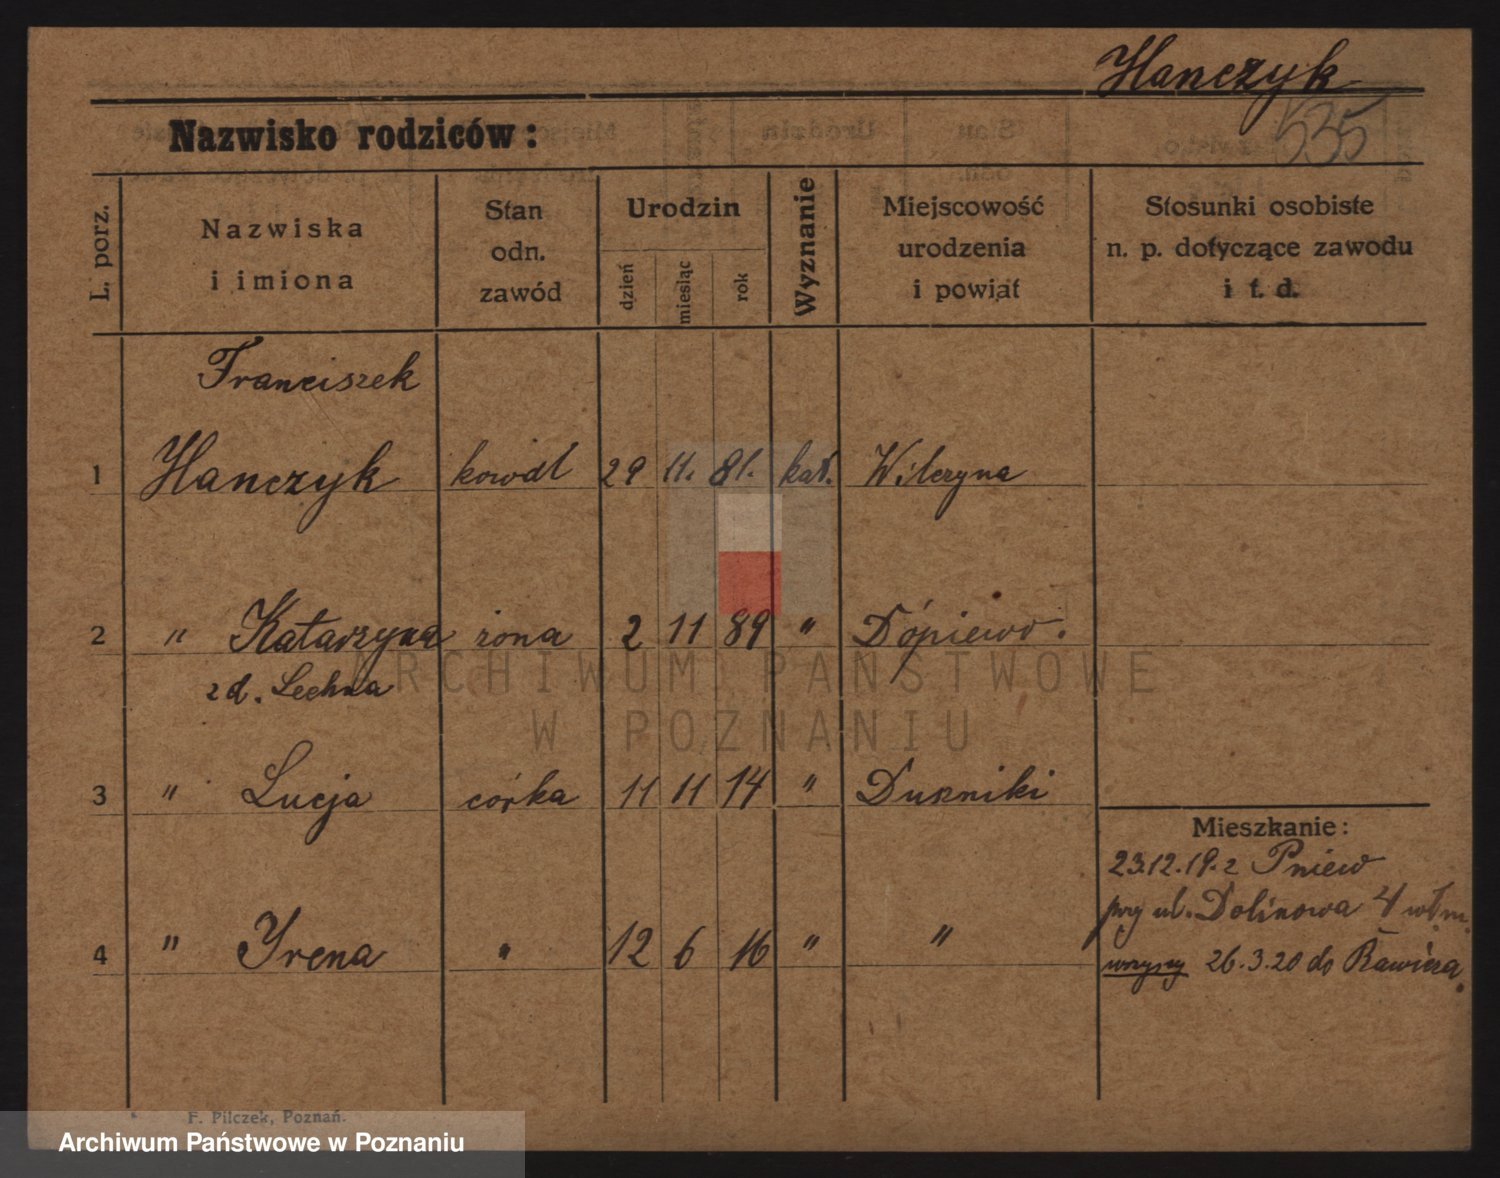 Hanczyk
535
Nazwisko rodziców:
L. porz.
Nazwiska
i imiona
Stan
odn.
zawód
Urodzin
dzień
miesiąc
rok
Wyznanie
Miejscowość
urodzenia
i powiat
Stosunki osobiste
n. p. dotyczące zawodu
i t. d.
Franciszek
1 Hanczyk kowal 29 11. 81. kat. Wilczyna
2 " Katarzyna żona 2 11 89 " Dopiewo.
zd. Lechna
3 " Lucja córka 11 11 14 " Duszniki
4 " Yrena " 12 6 16 " "
Mieszkanie:
23.12.19. z Pniew
przy ul. Dolinowa 4
wszyscy 26.3.20 do Rawicza.
F. Pilczek, Poznań.
ARCHIWUM PAŃSTWOWE
W POZNANIU
Archiwum Państwowe w Poznaniu